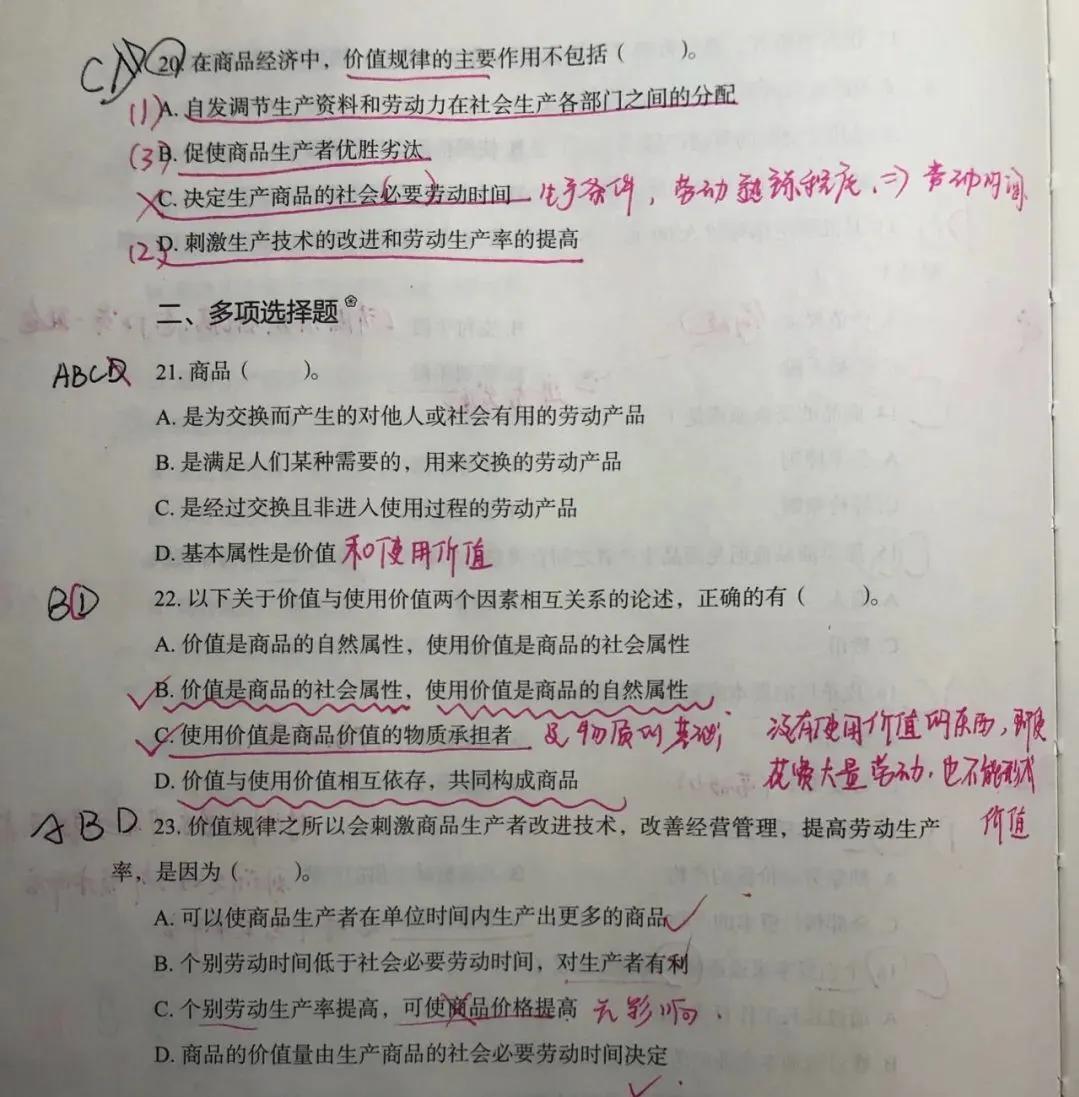 C
20. 在商品经济中，价值规律的主要作用不包括（　　）。
(1) A. 自发调节生产资料和劳动力在社会生产各部门之间的分配
(3) B. 促使商品生产者优胜劣汰
C. 决定生产商品的社会必要劳动时间 生产条件，劳动熟练程度 ⇒ 劳动时间
(2) D. 刺激生产技术的改进和劳动生产率的提高
二、多项选择题
ABCD 21. 商品（　　）。
A. 是为交换而产生的对他人或社会有用的劳动产品
B. 是满足人们某种需要的，用来交换的劳动产品
C. 是经过交换且非进入使用过程的劳动产品
D. 基本属性是价值 和使用价值
BD 22. 以下关于价值与使用价值两个因素相互关系的论述，正确的有（　　）。
A. 价值是商品的自然属性，使用价值是商品的社会属性
B. 价值是商品的社会属性，使用价值是商品的自然属性
C. 使用价值是商品价值的物质承担者 是物质的基础； 没有使用价值的东西，即使
D. 价值与使用价值相互依存，共同构成商品 花费大量劳动，也不能形成
价值
ABD 23. 价值规律之所以会刺激商品生产者改进技术，改善经营管理，提高劳动生产
率，是因为（　　）。
A. 可以使商品生产者在单位时间内生产出更多的商品
B. 个别劳动时间低于社会必要劳动时间，对生产者有利
C. 个别劳动生产率提高，可使商品价格提高 无影响．
D. 商品的价值量由生产商品的社会必要劳动时间决定